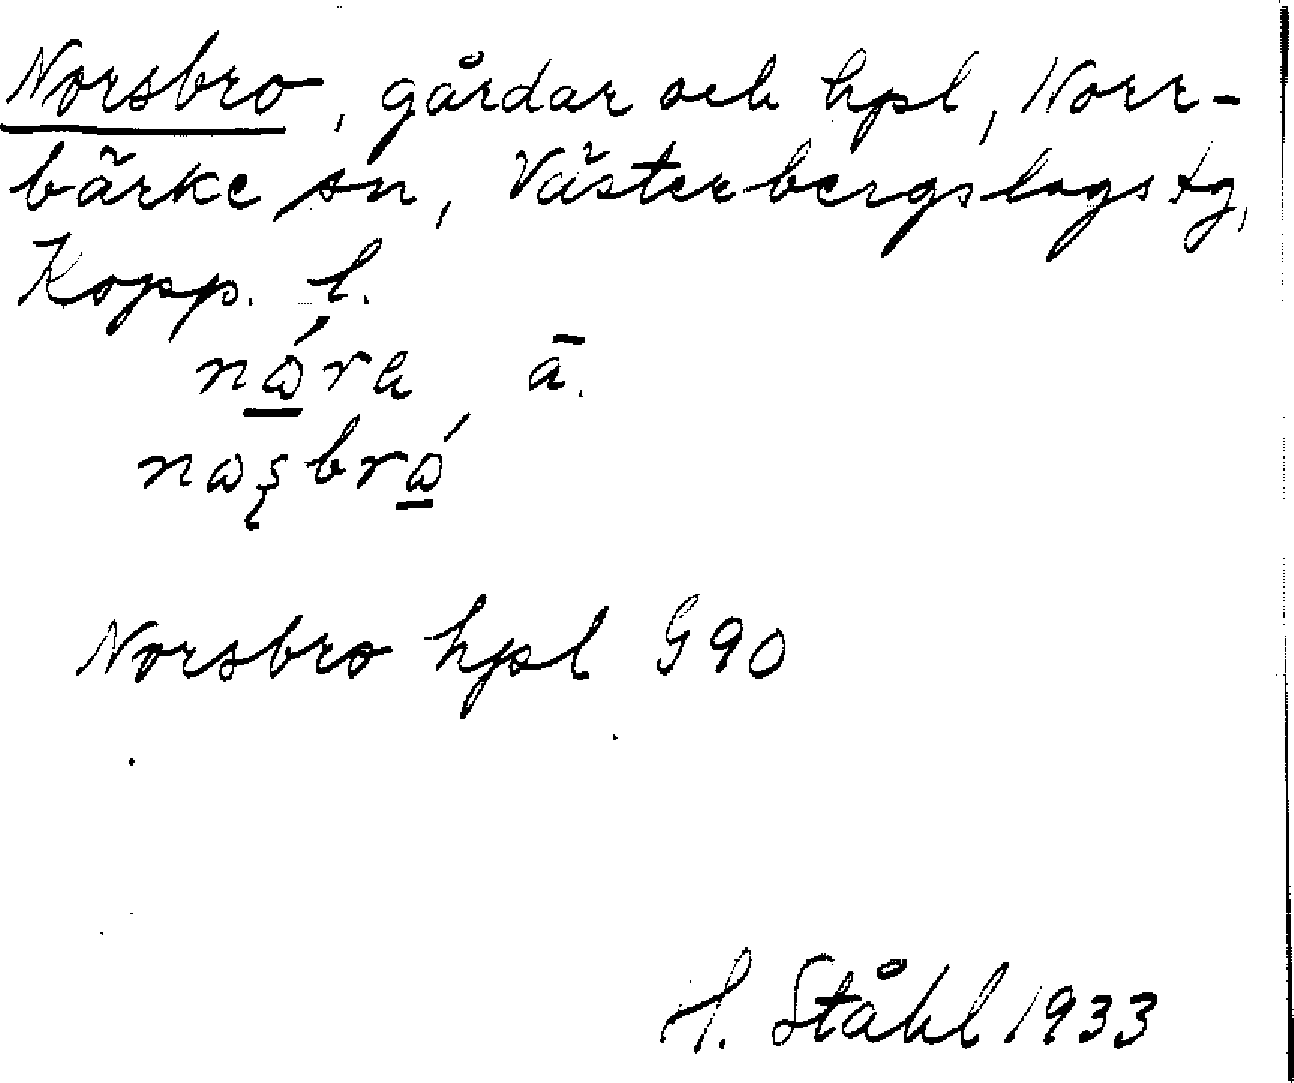 Norsbro, gårdar och hpl, Norr-
bärke sn, Västerbergslags tg,
Kopp. l.
nǫ́ra ā.
nɷʂbrɷ́
Norsbro hpl G90
H. Ståhl 1933